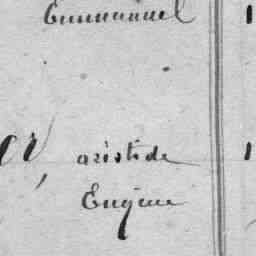 Emmanuel 1
aristide 1
Eugène